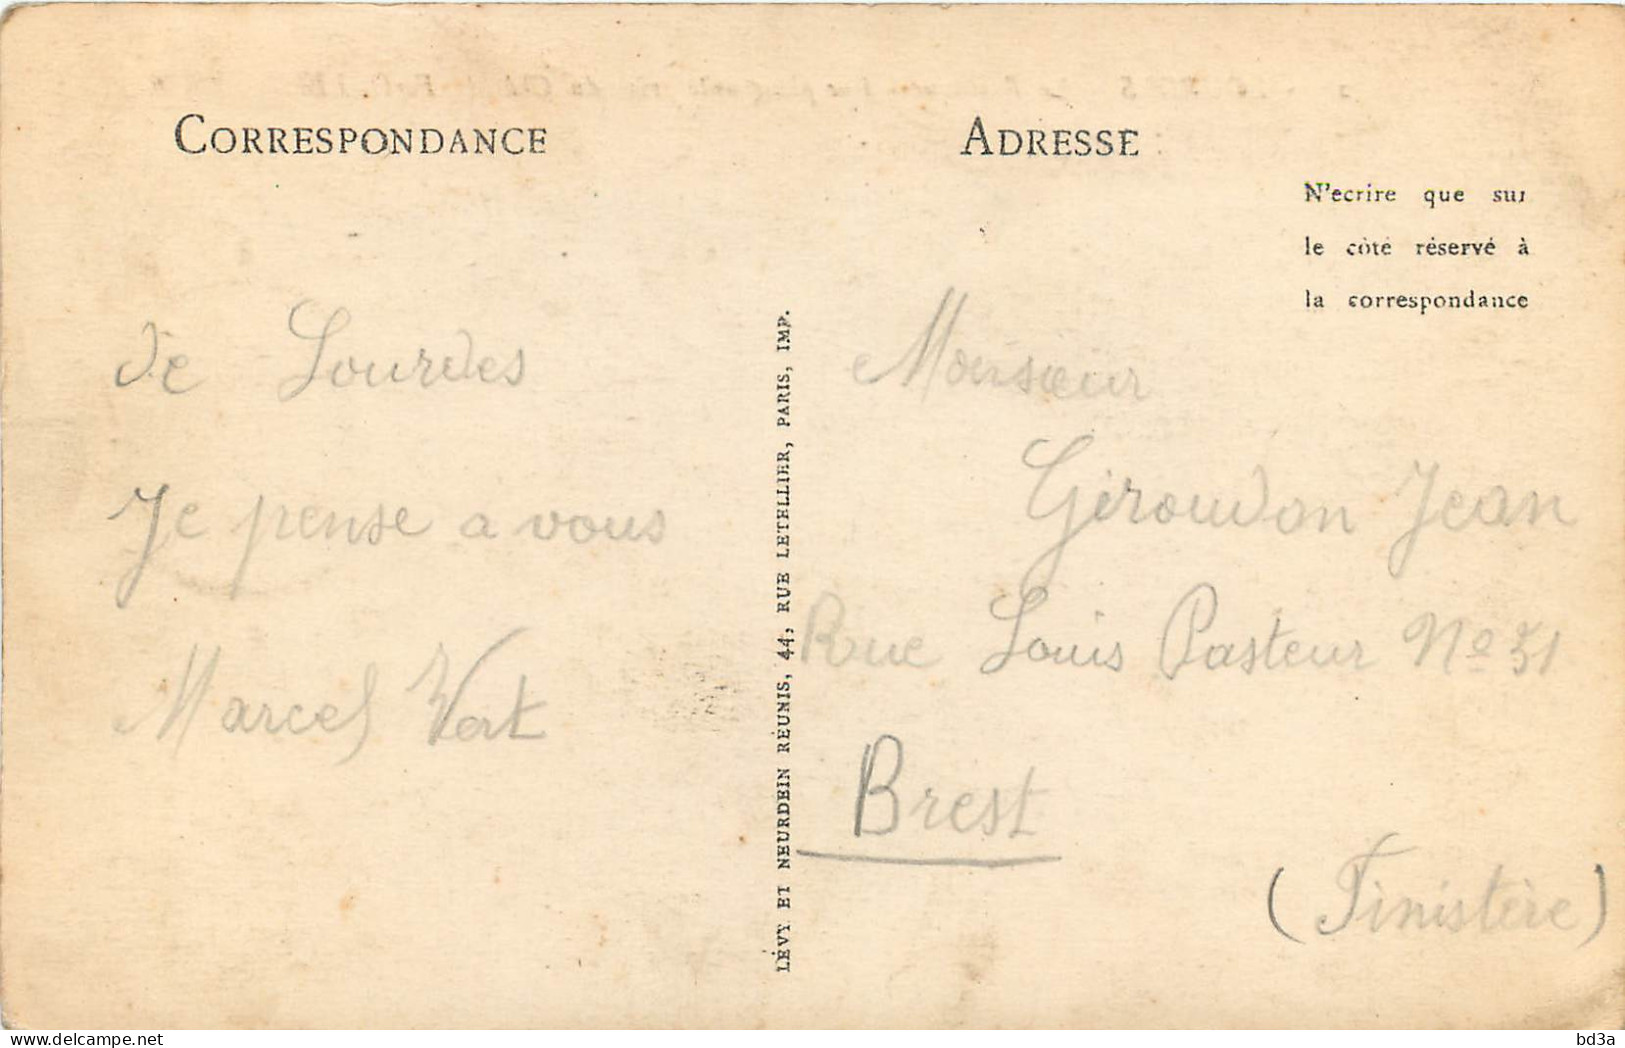 CORRESPONDANCE
de Lourdes
Je pense a vous
Marcel Vert
LÉVY ET NEURDEIN RÉUNIS, 44, RUE LETELLIER, PARIS, IMP.
ADRESSE
N'ecrire que sur
le côté réservé à
la correspondance
Monsieur
Géroudon Jean
Rue Louis Pasteur Nº 51
Brest
(Finistère)
delcampe.net
bd3a